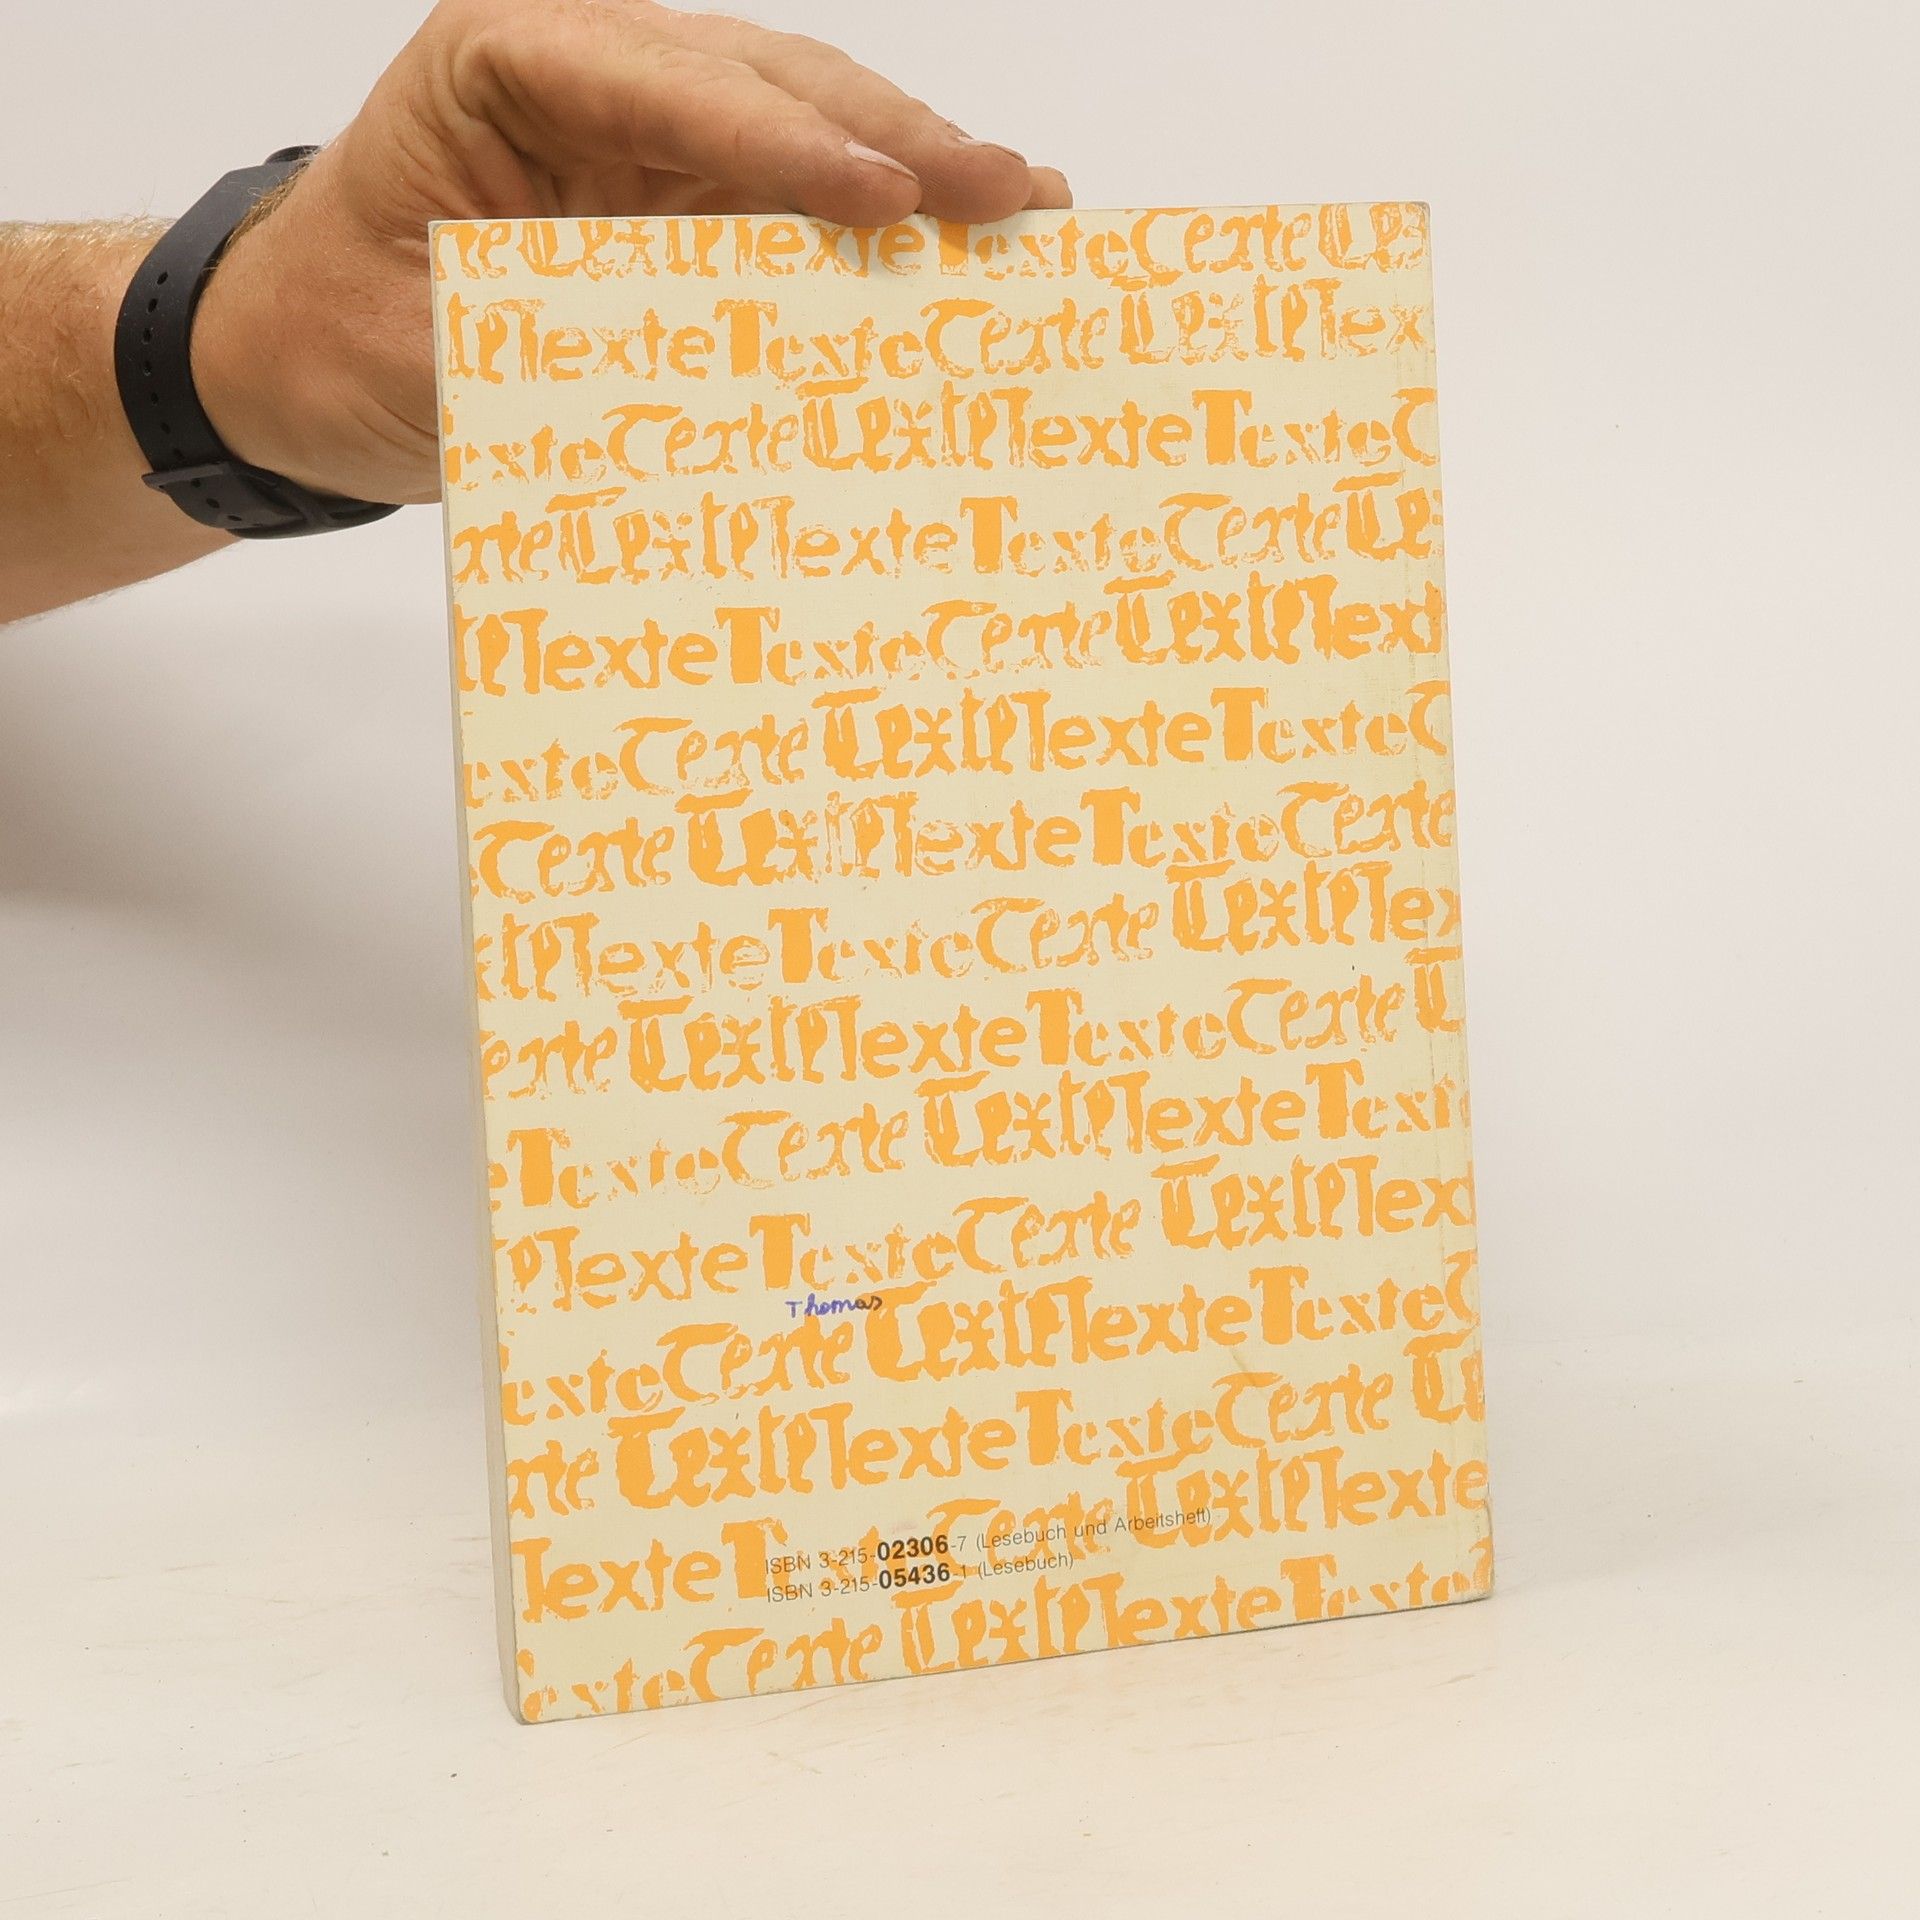 Texte Texte Texte Texte Texte
Texte Texte Texte Texte
Texte Texte Texte Texte
Texte Texte Texte Texte
Texte Texte Texte Texte
Texte Texte Texte Texte
Texte Texte Texte Texte Texte
Texte Texte Texte Texte
Texte Texte Texte Texte
Texte Texte Texte Texte
Texte Texte Texte Texte
Thomas
Texte Texte Texte Texte
Texte Texte Texte Texte Texte
Texte Texte Texte Texte Texte
ISBN 3-215-02306-7 (Lesebuch und Arbeitsheft)
ISBN 3-215-05436-1 (Lesebuch)
Texte Texte Texte Texte